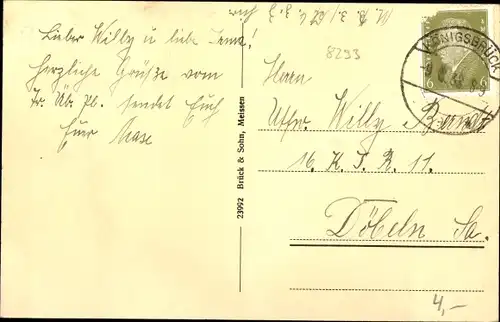 Lieber Willy u liebe
herzliche Grüße vom
Tr. Üb. Pl. sendet Euch
Euer
23992 Brück & Sohn, Meissen
8293
KÖNIGSBRÜCK
6
Herrn
Uffw. Willy
16. K. I. R. 11.
Döbeln Sa.
4,-